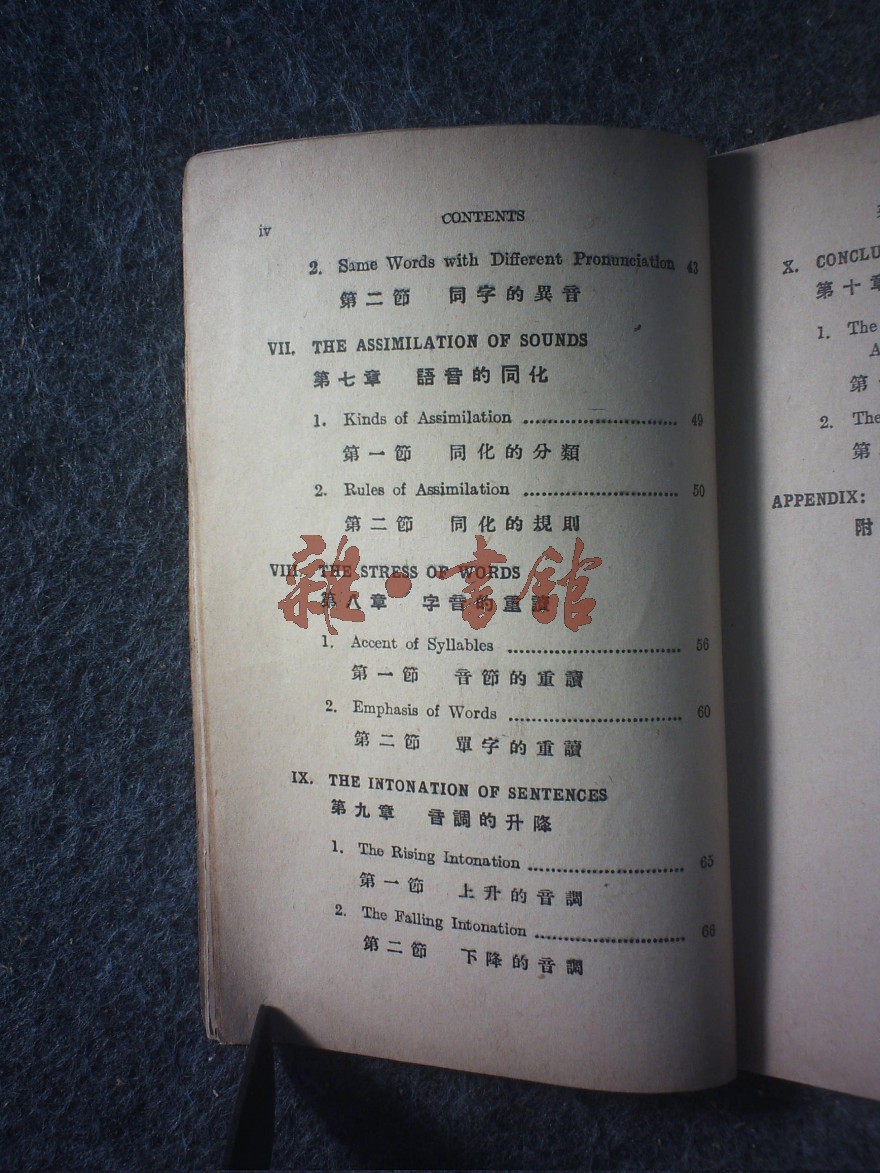 iv
CONTENTS
2. Same Words with Different Pronunciation 43
第二節 同字的異音
VII. THE ASSIMILATION OF SOUNDS
第七章 語音的同化
1. Kinds of Assimilation ........................ 49
第一節 同化的分類
2. Rules of Assimilation ........................ 50
第二節 同化的規則
VIII. THE STRESS OF WORDS
第八章 字音的重讀
雜·書館
1. Accent of Syllables ........................ 56
第一節 音節的重讀
2. Emphasis of Words ........................ 60
第二節 單字的重讀
IX. THE INTONATION OF SENTENCES
第九章 音調的升降
1. The Rising Intonation ........................ 65
第一節 上升的音調
2. The Falling Intonation ........................ 66
第二節 下降的音調
X. CONCLU
第十章
1. The
A
第
2. The
第
APPENDIX:
附